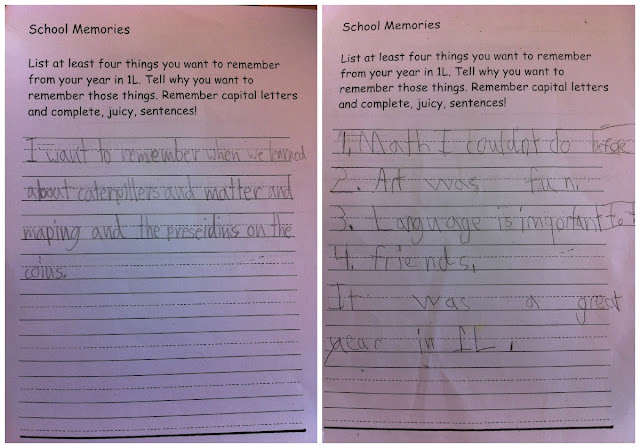 School Memories
List at least four things you want to remember
from your year in 1L. Tell why you want to
remember those things. Remember capital letters
and complete, juicy, sentences!
I want to remember when we learned
about caterpillers and matter and
maping and the preseidins on the
coius.
School Memories
List at least four things you want to remember
from your year in 1L. Tell why you want to
remember those things. Remember capital letters
and complete, juicy, sentences!
1. Math I couldnt do before
2. Art was fun.
3. Language is important to
4. friends.
It was a great
year in 1L.